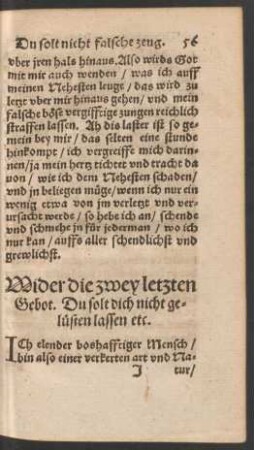 Du solt nicht falsche zeug. 56
vber jren hals hinaus. Also wirds Got
mit mir auch wenden / was ich auff
meinen Nehesten leuge / das wird zu
letzt vber mir hinaus gehen / vnd mein
falsche böse vergifftige zungen reichlich
straffen lassen. Ah dis laster ist so ge-
mein bey mir / das selten eine stunde
hinkompt / ich vergreiffe mich darin-
nen / ja mein hertz tichtet vnd tracht da
von / wie ich dem Nehesten schaden /
vnd jn beliegen müge / wenn ich nur ein
wenig etwa von jm verletzt vnd ver-
ursacht werde / so hebe ich an / schende
vnd schmehe jn für jederman / wo ich
nur kan / auffs aller schendlichst vnd
grewlichst.
Wider die zwey letzten
Gebot. Du solt dich nicht ge-
lüsten lassen etc.
ICh elender boshafftiger Mensch /
bin also einer verkerten art vnd Na-
J tur /